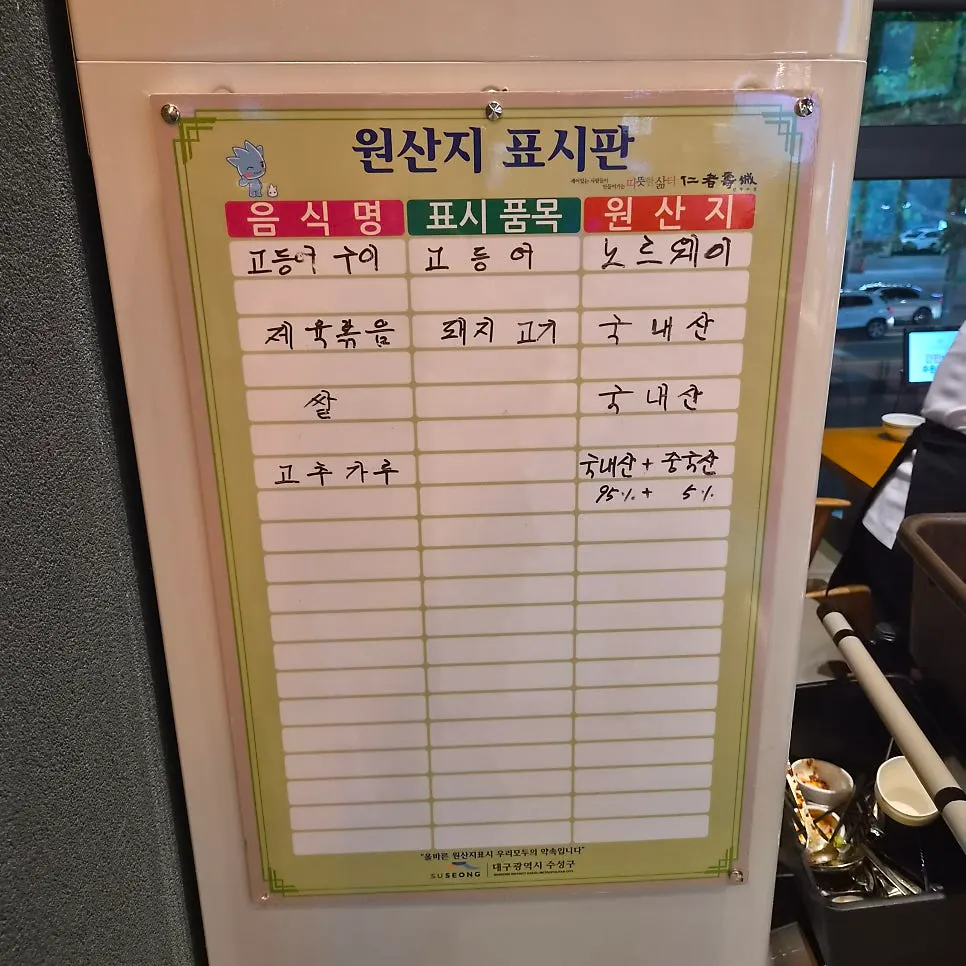 원산지 표시판
깨어있는 사람들이
만들어가는 따뜻한 삶터 仁者壽城
음식명 표시품목 원산지
고등어 구이 고등어 노르웨이
제육볶음 돼지고기 국내산
쌀 국내산
고추가루 국내산 + 중국산
95% + 5%
"올바른 원산지표시 우리모두의 약속입니다"
SUSEONG 대구광역시 수성구